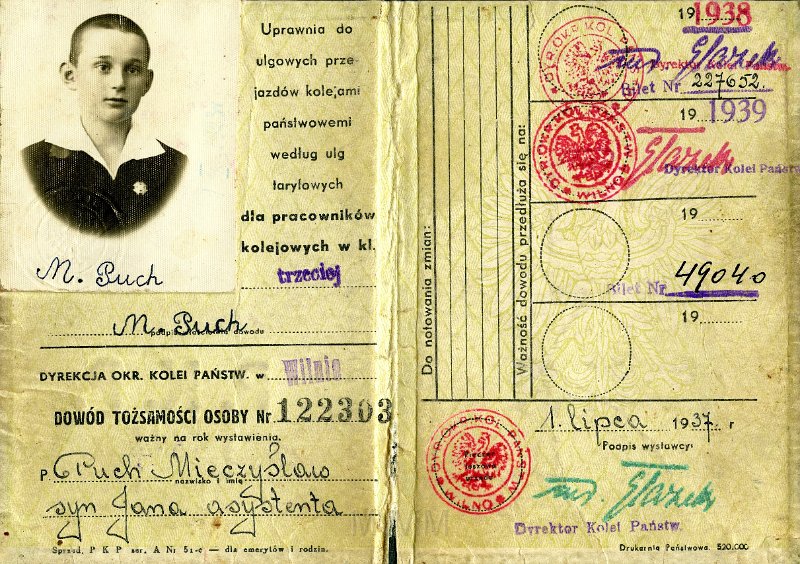 Uprawnia do
ulgowych prze-
jazdów kolejami
państwowemi
według ulg
taryfowych
dla pracowników
kolejowych w kl.
trzeciej
M. Puch
M. Puch
podpis właściciela dowodu
DYREKCJA OKR. KOLEI PAŃSTW. w Wilnie
DOWÓD TOŻSAMOŚCI OSOBY Nr 122303
ważny na rok wystawienia.
P Puch Mieczysław
nazwisko i imię
syn Jana asystenta
Sprzed. P K P ser. A Nr 51-c — dla emerytów i rodzin.
Do notowania zmian:
Ważność dowodu przedłuża się na:
19 1938
DYR. OKR. KOL. PAŃSTW. WILNO
Glazek
Dyrektor Kolei Państw.
Bilet Nr 227652
19 1939
DYR. OKR. KOL. PAŃSTW. WILNO
Glazek
Dyrektor Kolei Państw.
19
Bilet Nr 49040
19
1. lipca 1937 r
Podpis wystawcy:
DYR. OKR. KOL. PAŃSTW. WILNO
Glazek
Dyrektor Kolei Państw.
Drukarnia Państwowa. 520.000